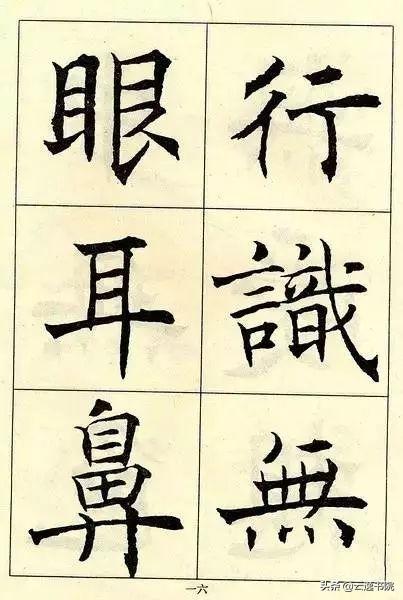 行識無
眼耳鼻
一六
头条@云逸书院